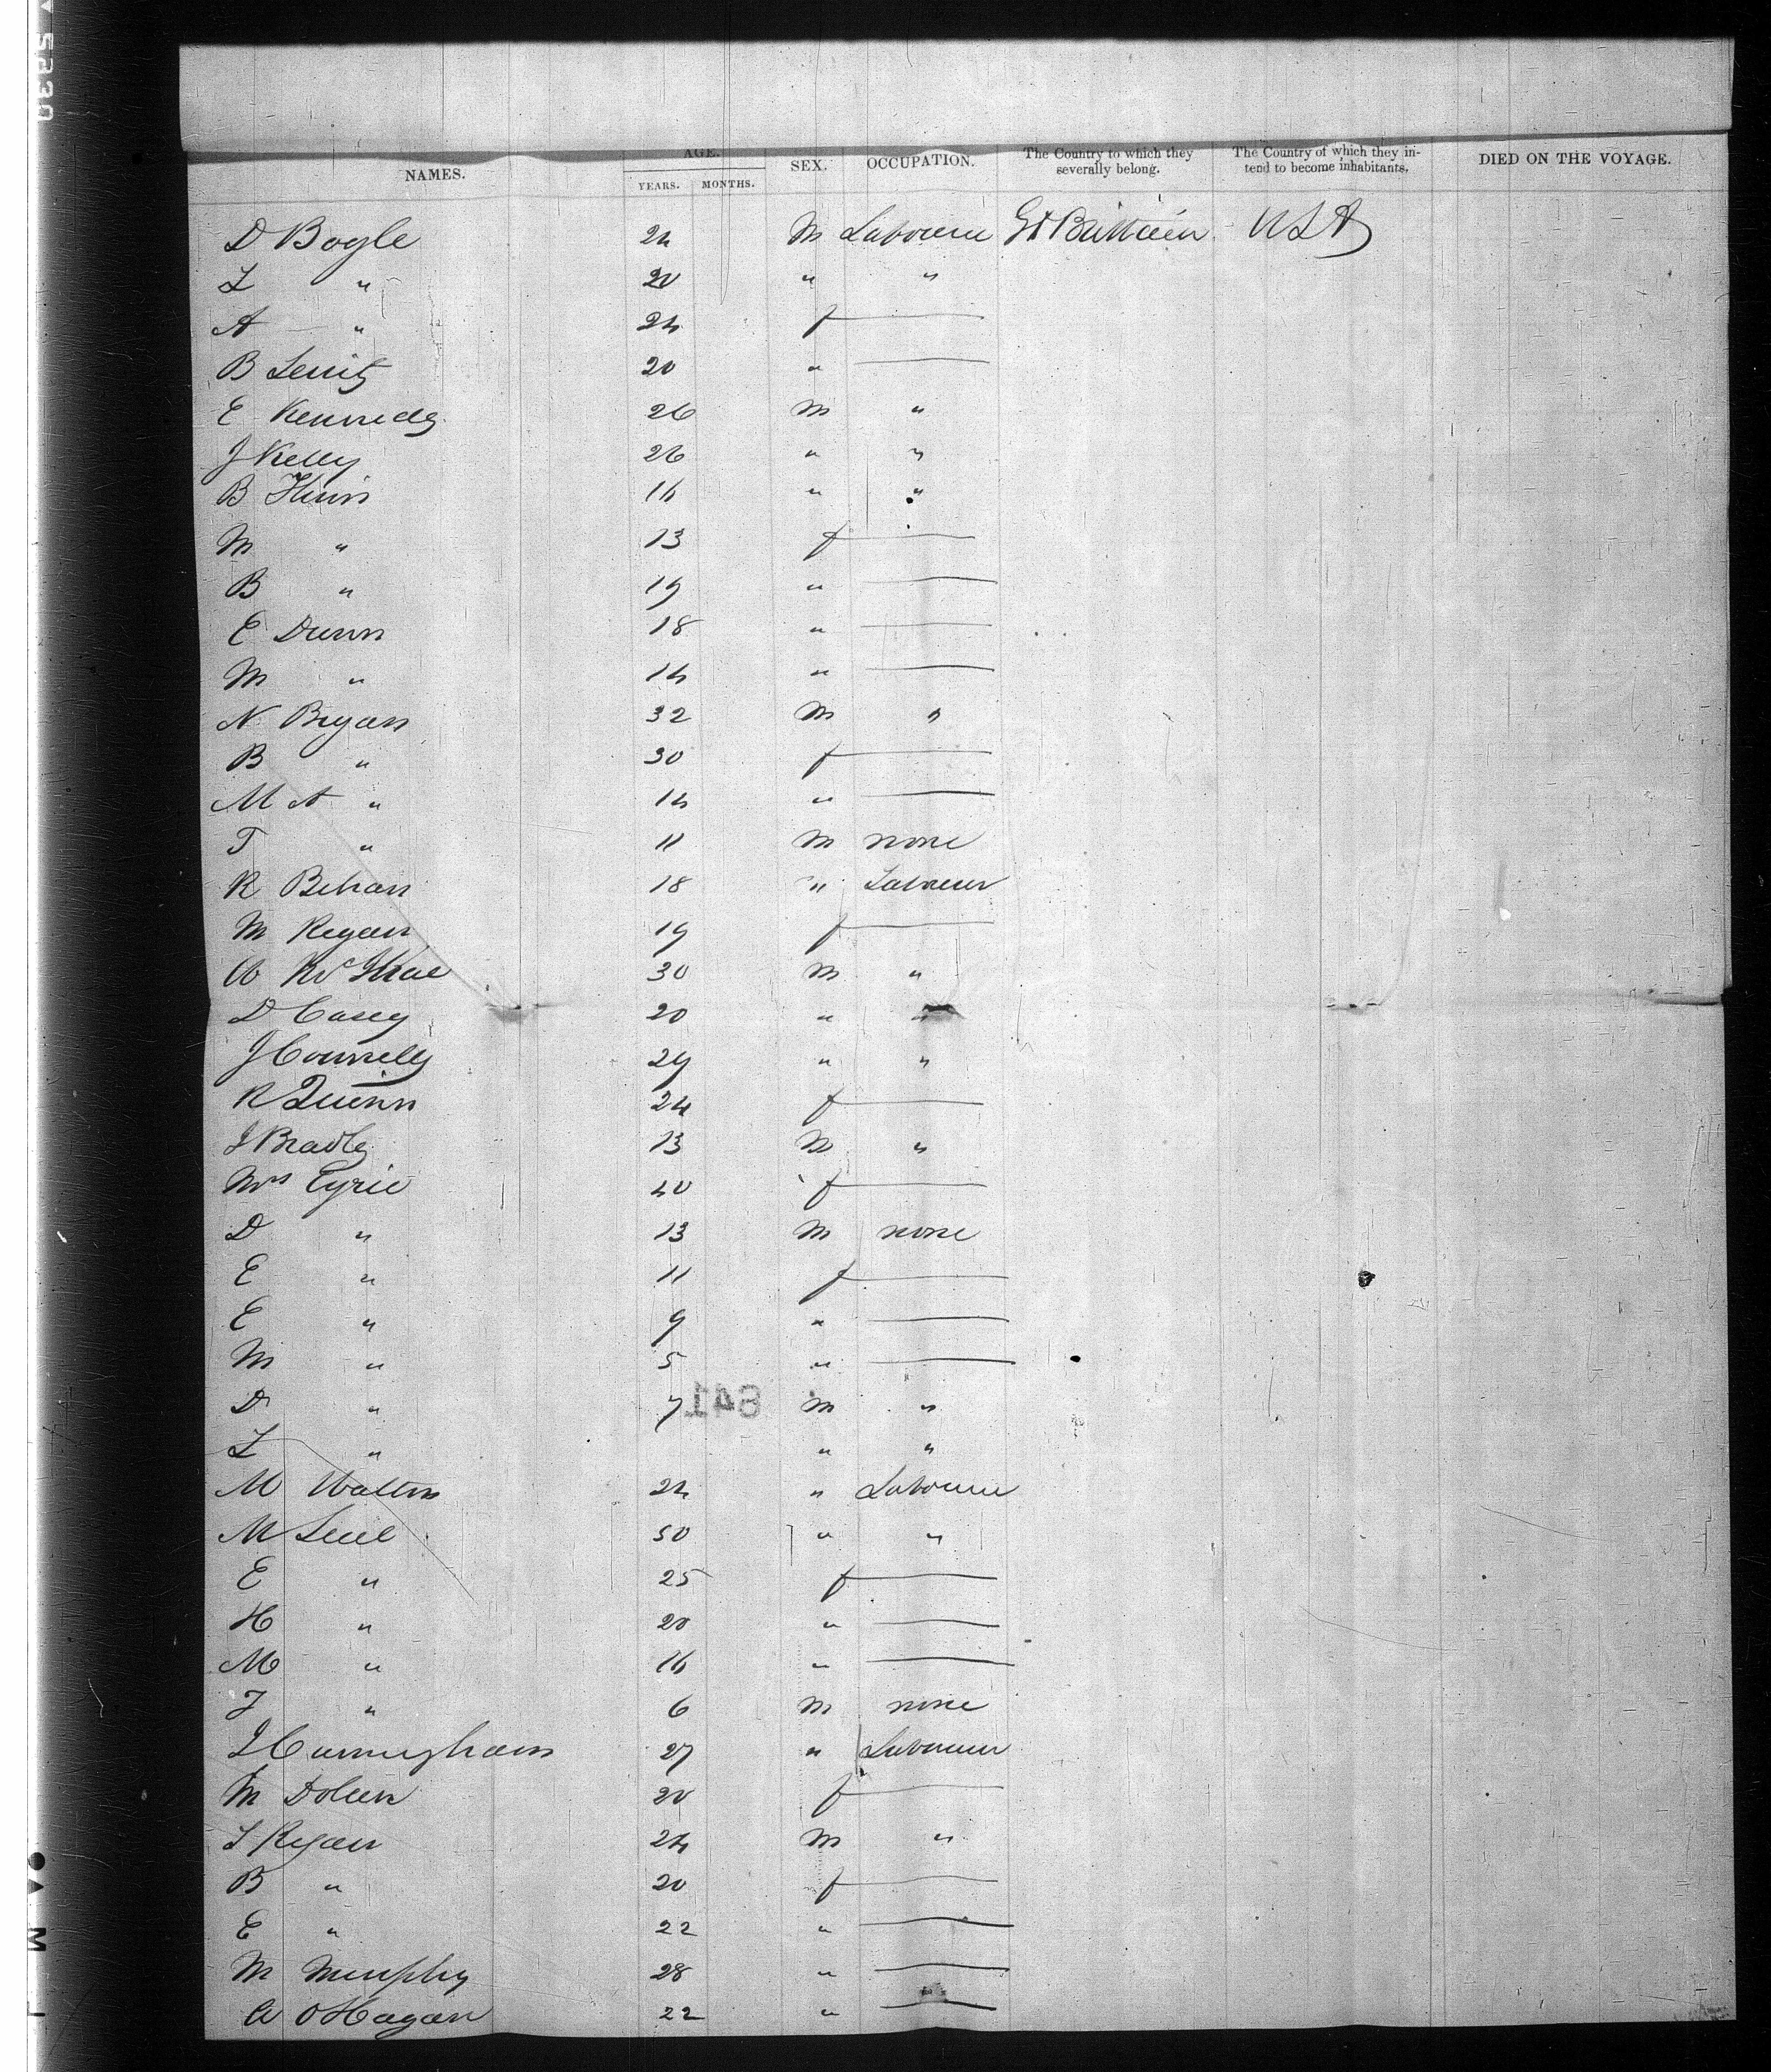 NAMES. AGE. SEX. OCCUPATION. The Country to which they severally belong. The Country of which they intend to become inhabitants. DIED ON THE VOYAGE.
YEARS. MONTHS.
D Bogle 24 M Labourer Gt Brittain USA
L " 20 " "
A " 24 f —
B 20 " —
E Kennedy 26 M "
J Kelly 26 " "
B 16 " "
M " 13 f —
B " 19 " —
E Dunn 18 " —
M " 14 " —
N Bryan 32 M "
B " 30 f —
M A " 14 " —
T " 11 M none
R Behan 18 " Labourer
M Regan 19 f —
30 M "
D Casey 20 " "
J Connelly 29 " "
R Quinn 24 f —
J Bradley 13 M "
Mrs Eyrie 40 f —
D " 13 M none
E " 11 f —
E " 9 " —
M " 5 " —
D " 7 M "
841
L " " "
M Walters 24 " Labourer
M 50 " "
E " 25 f —
H " 20 " —
M " 16 " —
J " 6 M none
J Cunningham 27 " Labourer
M Dolan 20 f —
J Regan 24 M "
B " 20 f —
E " 22 " —
M Murphy 28 " —
A O Hagan 22 " —